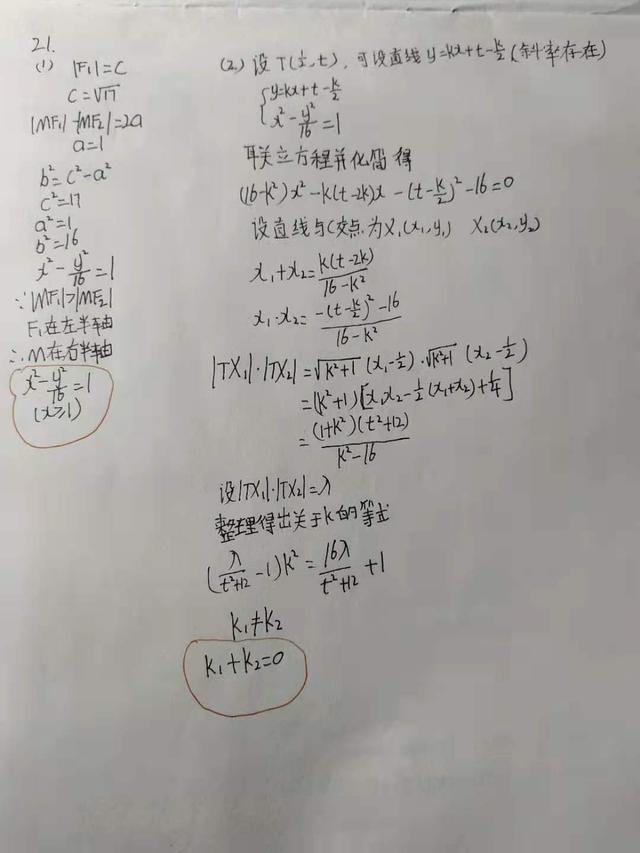 21.
(1) |F₁|=C
C=√17
|MF₁|-|MF₂|=2a
a=1
b²=c²-a²
c²=17
a²=1
b²=16
x²-y²/16=1
∵|MF₁|>|MF₂|
F₁在左半轴
∴M在右半轴
x²-y²/16=1
(x≥1)
(2) 设T(½,t), 可设直线y=kx+t-k/2(斜率存在)
{y=kx+t-k/2
{x²-y²/16=1
联立方程并化简得
(16-k²)x²-k(t-2k)x-(t-k/2)²-16=0
设直线与C交点为X₁(x₁,y₁) X₂(x₂,y₂)
x₁+x₂=k(t-2k)/(16-k²)
x₁·x₂=(-(t-k/2)²-16)/(16-k²)
|TX₁|·|TX₂|=√(k²+1)(x₁-½)·√(k²+1)(x₂-½)
=(k²+1)[x₁x₂-½(x₁+x₂)+¼]
=(1+k²)(t²+12)/(k²-16)
设|TX₁|·|TX₂|=λ
整理得出关于k的等式
(λ/(t²+12)-1)k²=16λ/(t²+12)+1
k₁≠k₂
k₁+k₂=0